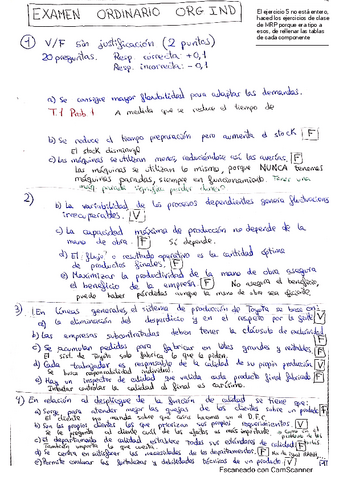 EXAMEN ORDINARIO ORG IND
El ejercicio 5 no está entero,
haced los ejercicios de clase
de MRP porque era tipo a
esos, de rellenar las tablas
de cada componente
1) V/F sin justificación (2 puntos)
20 preguntas. Resp correcta: +0,1
Resp. incorrecta: -0,1
a) Se consigue mayor flexibilidad para adaptar las demandas.
T.1 Prob 1 A medida que se reduce el tiempo de
b) Se reduce el tiempo preparación pero aumenta el stock F
El stock disminuye
c) Las máquinas se utilizan menos, reduciéndose así las averías. F
las máquinas se utilizan lo mismo, porque NUNCA tenemos
máquinas paradas, siempre en funcionamiento. Tener una
máq. puede significar perder dinero
2)
b) La variabilidad de los procesos dependientes genera fluctuaciones
irrecuperables. V
c) La capacidad máxima de producción no depende de la
mano de obra. F Sí depende.
d) El "flujo" o resultado operativo es la cantidad óptima
de productos finales. F
e) Maximizar la productividad de la mano de obra asegura
el beneficio de la empresa F No asegura el beneficio,
puedo haber pérdidas aunque la mano de obra sea eficiente
3) En líneas generales el sistema de producción de Toyota se basa en:
a) la eliminación del desperdicio y en el respeto por la gente V
b) Las empresas subcontratadas deben tener la cláusula de exclusividad F
c) Se acumulan pedidos para fabricar en lotes grandes y rentables F
El sist. de Toyota solo fabrica lo que le piden.
d) Cada trabajador es responsable de la calidad de su propia producción V
Se busca responsabilidad individual
e) Hay un inspector de calidad que valida cada producto final fabricado F
Intentar controlar la calidad al final es carísimo.
4) En relación al despliegue de la función de calidad se tiene que:
a) Sirve para atender mejor las quejas de los clientes sobre un producto F
El cliente no
b) Son los propios clientes los que priorizan sus propios requerimientos V
Se le pregunta al cliente cual de los
c) El departamento de calidad establece todos sus estándares de calidad F
También importa lo que
d) Se centra en satisfacer las necesidades de los departamentos. F
e) Permite evaluar las fortalezas y debilidades técnicas de un producto V
Escaneado con CamScanner